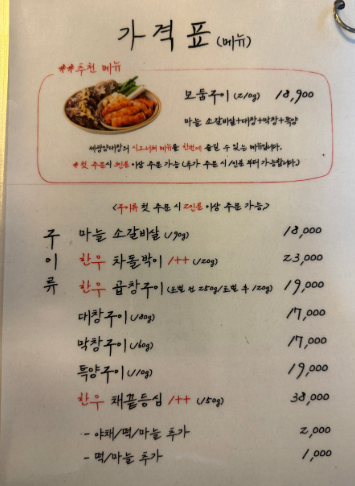 가격표 (메뉴)
##추천 메뉴
모둠구이 (210g) 18,900
마늘 소갈비살+대창+막창+특양
메뉴를 한번에 즐길 수 있는 메뉴입니다.
# 첫 주문시 2인분 이상 주문 가능 (추가 주문시 1인분 부터 가능합니다.)
<구이류 첫 주문시 2인분 이상 주문 가능>
구이류
마늘 소갈비살 (190g) 18,000
한우 차돌박이 1++ (120g) 23,000
한우 곱창구이 (조립 전 250g/조립 후 120g) 19,000
대창구이 (180g) 17,000
막창구이 (160g) 17,000
특양구이 (110g) 19,000
한우 채끝등심 1++ (150g) 38,000
- 야채/떡/마늘 추가 2,000
- 떡/마늘 추가 1,000